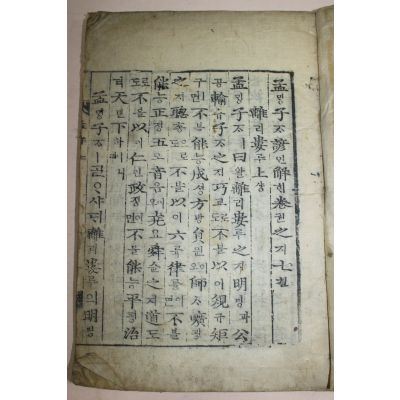 孟밍子ᄌᆞ諺언解ᄒᆡ卷권之지七칠
離리婁루上샹
孟밍子ᄌᆞㅣ曰왈離리婁루之지明명과公
공輸슈子ᄌᆞ之지巧교로도不블以이規규矩
구ㅣ면不블能능成셩方방員원이오師ᄉᆞ曠광
之지聰총으로도不블以이六륙律률이면不블
能능正졍五오音음이오堯요舜슌之지道도
로도不블以이仁인政졍이면不블能능平평治
티天텬下하ㅣ니라
孟밍子ᄌᆞㅣ ᄀᆞᆯᄋᆞ샤ᄃᆡ離리婁루의明명